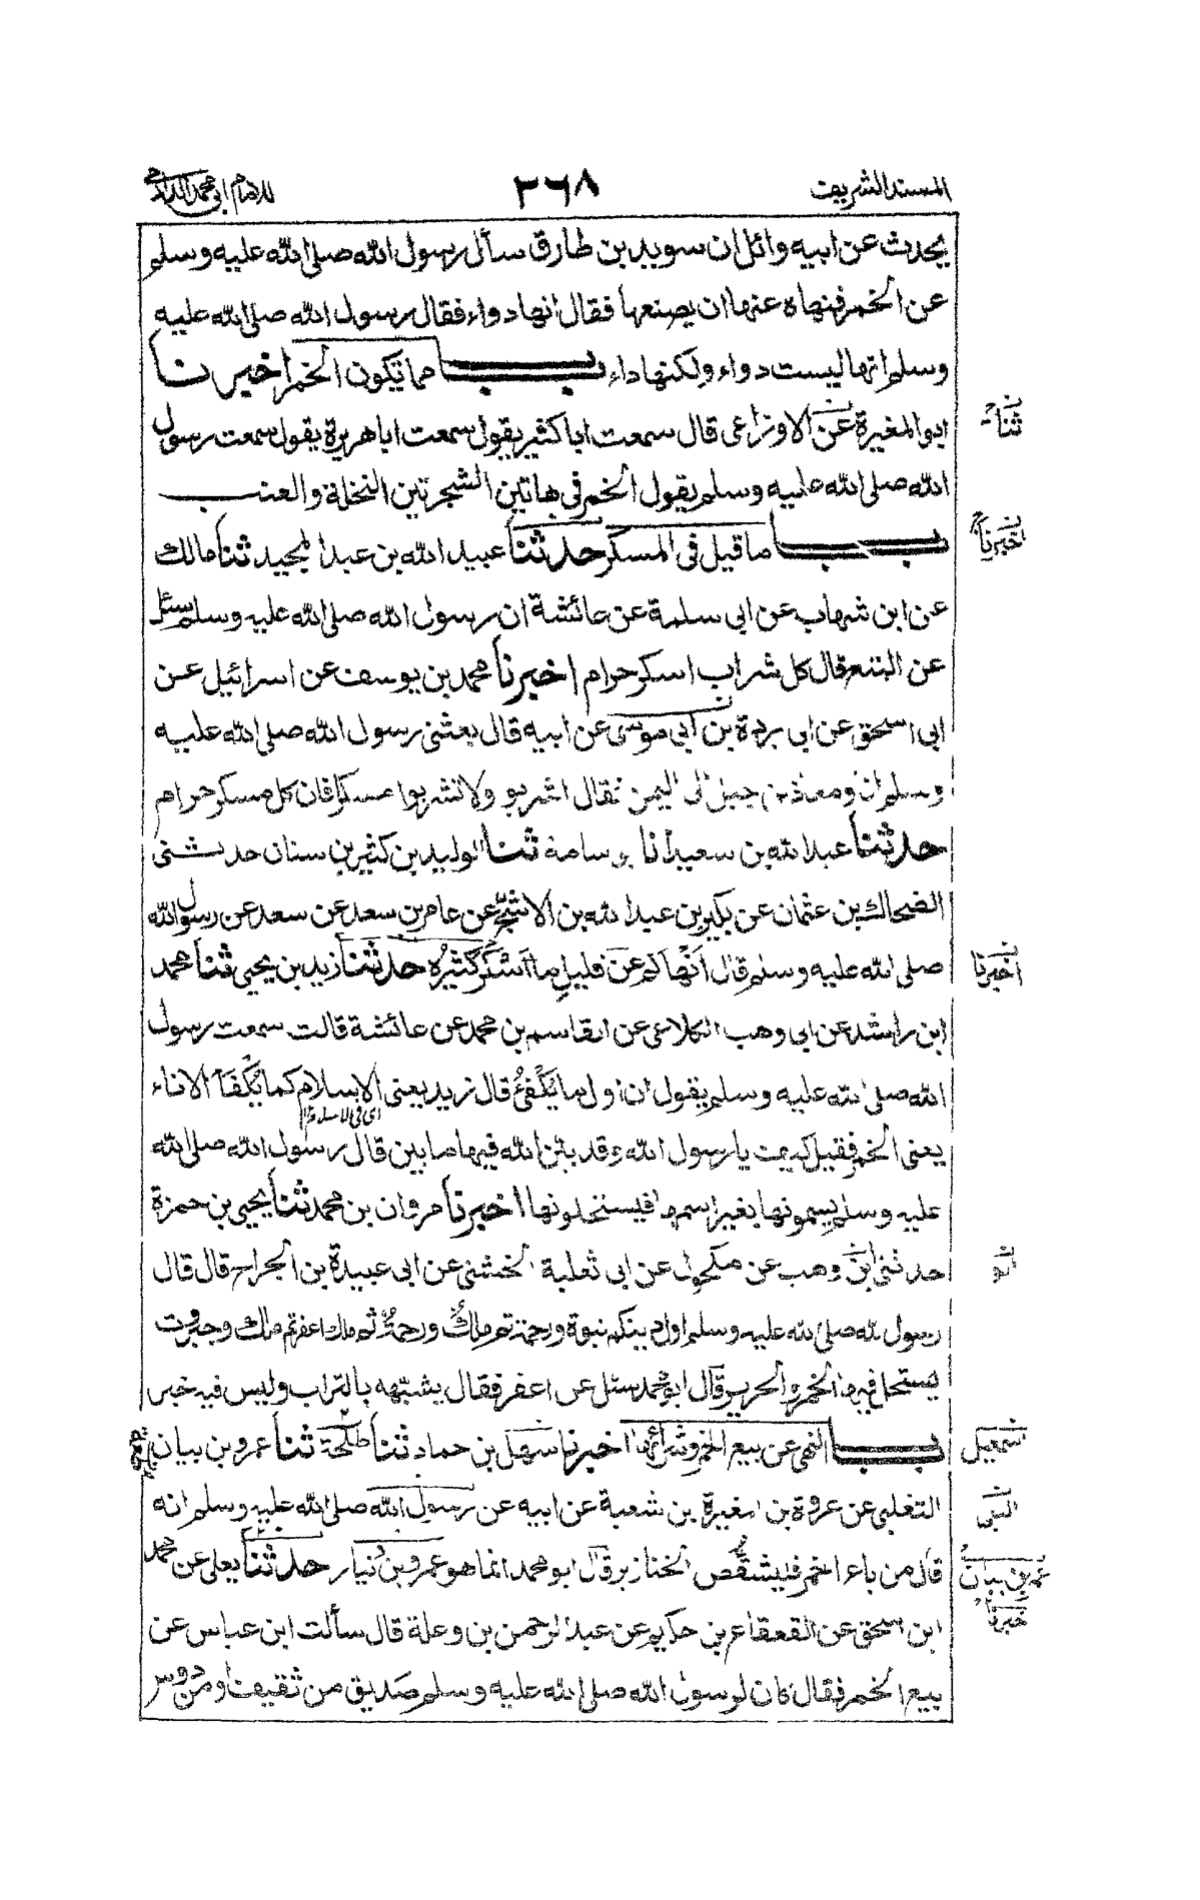 المسند الشريف ٢٦٨ للامام ابى محمد الدارمى
يحدث عن ابيه وائل ان سويد بن طارق سأل رسول الله صلى الله عليه وسلم
عن الخمر فنهاه عنها ان يصنعها فقال انها دواء فقال رسول الله صلى الله عليه
وسلم انها ليست دواء ولكنها داء باب مما تكون الخمر اخبرنا
ثنا
ابو المغيرة عن الاوزاعى قال سمعت ابا كثير يقول سمعت ابا هريرة يقول سمعت رسول
الله صلى الله عليه وسلم يقول الخمر فى هاتين الشجرتين النخلة والعنب
اخبرنا
باب ما قيل فى المسكر حدثنا عبيد الله بن عبد المجيد ثنا مالك
عن ابن شهاب عن ابى سلمة عن عائشة ان رسول الله صلى الله عليه وسلم سئل
عن البتع قال كل شراب اسكر حرام اخبرنا محمد بن يوسف عن اسرائيل عن
ابى اسحق عن ابى بردة بن ابى موسى عن ابيه قال بعثنى رسول الله صلى الله عليه
وسلم انا ومعاذ بن جبل الى اليمن فقال اشربوا ولا تشربوا مسكرا فان كل مسكر حرام
حدثنا عبد الله بن سعيد انا ابو سامة ثنا الوليد بن كثير بن سنان حدثنى
الضحاك بن عثمان عن بكير بن عبد الله بن الاشج عن عامر بن سعد عن سعد عن رسول الله
صلى الله عليه وسلم قال أنهاكم عن قليل ما أسكر كثيره حدثنا زيد بن يحيى ثنا محمد
اخبرنا
ابن راشد عن ابى وهب الكلاعى عن القاسم بن محمد عن عائشة قالت سمعت رسول
الله صلى الله عليه وسلم يقول ان اول ما يكفئ قال زيد يعنى الاسلام كما يكفأ الاناء
اى فى الاسلام
يعنى الخمر فقيل كيف يا رسول الله وقد بين الله فيها ما بين قال رسول الله صلى الله
عليه وسلم يسمونها بغير اسمها فيستحلونها اخبرنا مروان بن محمد ثنا يحيى بن حمزة
ابو
حدثنى ابن وهب عن مكحول عن ابى ثعلبة الخشنى عن ابى عبيدة بن الجراح قال قال
رسول الله صلى الله عليه وسلم اول دينكم نبوة ورحمة ثم ملك ورحمة ثم ملك اعفر ثم ملك وجبروت
يستحل فيها الخمر والحرير قال ابو محمد سئل عن اعفر فقال يشبهه بالتراب وليس فيه خبر
باب النهى عن بيع الخمر وشرائها اخبرنا سهل بن حماد ثنا طلحة ثنا عمرو بن بيان
التغلبى عن عروة بن المغيرة بن شعبة عن ابيه عن رسول الله صلى الله عليه وسلم انه
النبى
قال من باع الخمر فليشقص الخنازير قال ابو محمد انما هو عمرو بن دينار حدثنا يعلى عن محمد
عمر بن بيان
اخبرنا
ابن اسحق عن القعقاع بن حكيم عن عبد الرحمن بن وعلة قال سألت ابن عباس عن
بيع الخمر فقال كان لرسول الله صلى الله عليه وسلم صديق من ثقيف او من دوس